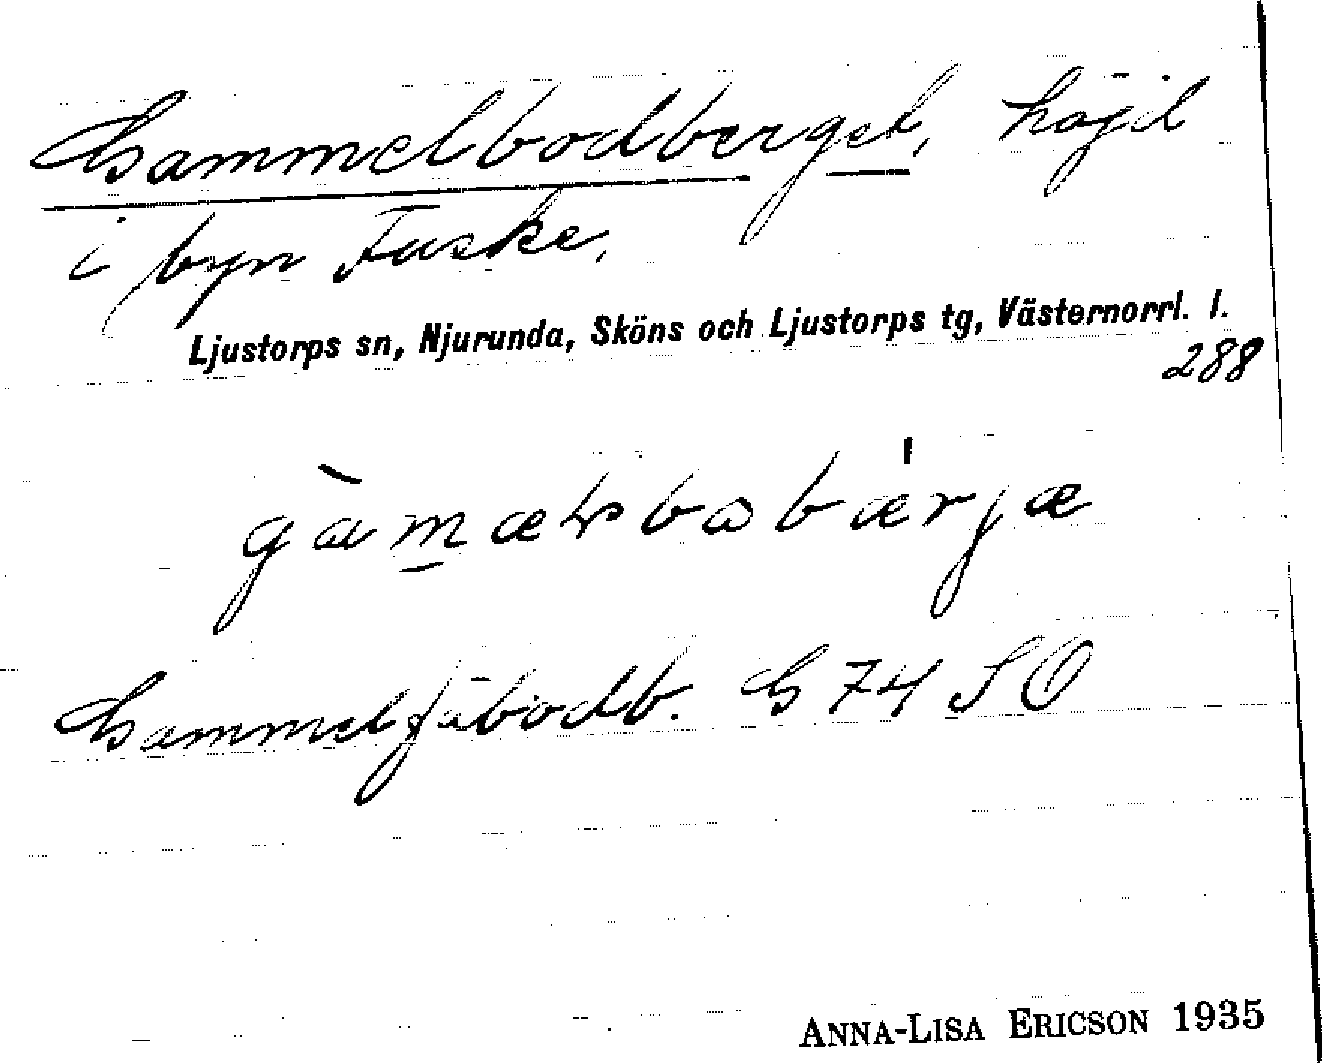 Gammelbodberget, höjd
i byn Fuske.
Ljustorps sn, Njurunda, Sköns och Ljustorps tg, Västernorrl. l.
288
Gammelfäbodb. G 74 SO
ANNA-LISA ERICSON 1935